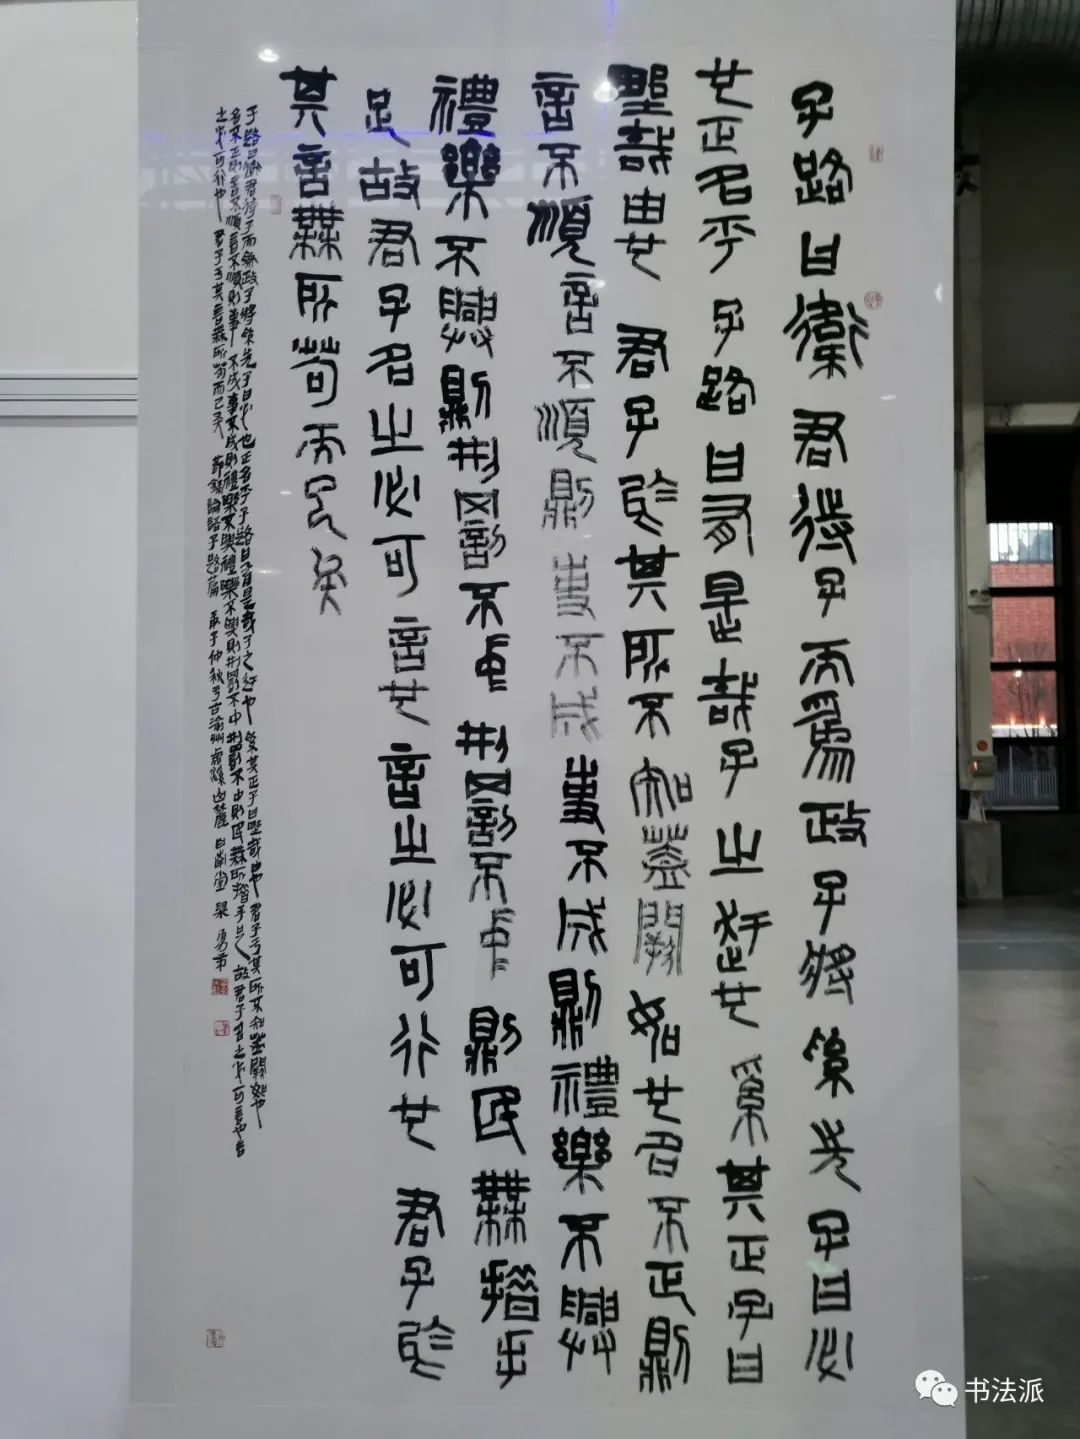 子路曰衛君待子而為政子將奚先子曰必
也正名乎子路曰有是哉子之迂也奚其正子曰
野哉由也君子於其所不知蓋闕如也名不正則
言不順言不順則事不成事不成則禮樂不興
禮樂不興則刑罰不中刑罰不中則民無措手
足故君子名之必可言也言之必可行也君子於
其言無所苟而已矣
子路曰衛君待子而為政子將奚先子曰必也正名乎子路曰有是哉子之迂也奚其正子曰野哉由也君子于其所不知蓋闕如也
名不正則言不順言不順則事不成事不成則禮樂不興禮樂不興則刑罰不中刑罰不中則民無所措手足故君子名之必可言也言
之必可行也君子于其言無所苟而已矣節錄論語子路篇庚子仲秋于古渝州虎溪山麓南堂梁勇
书法派